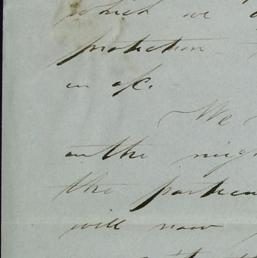 which we
protection
in a/c.
We
on the nigh
the particu
will now